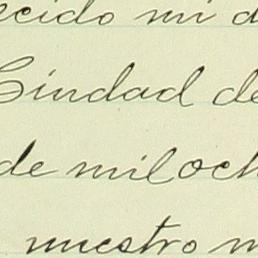 ecido mi d
Ciudad de
de mil och
nuestro m